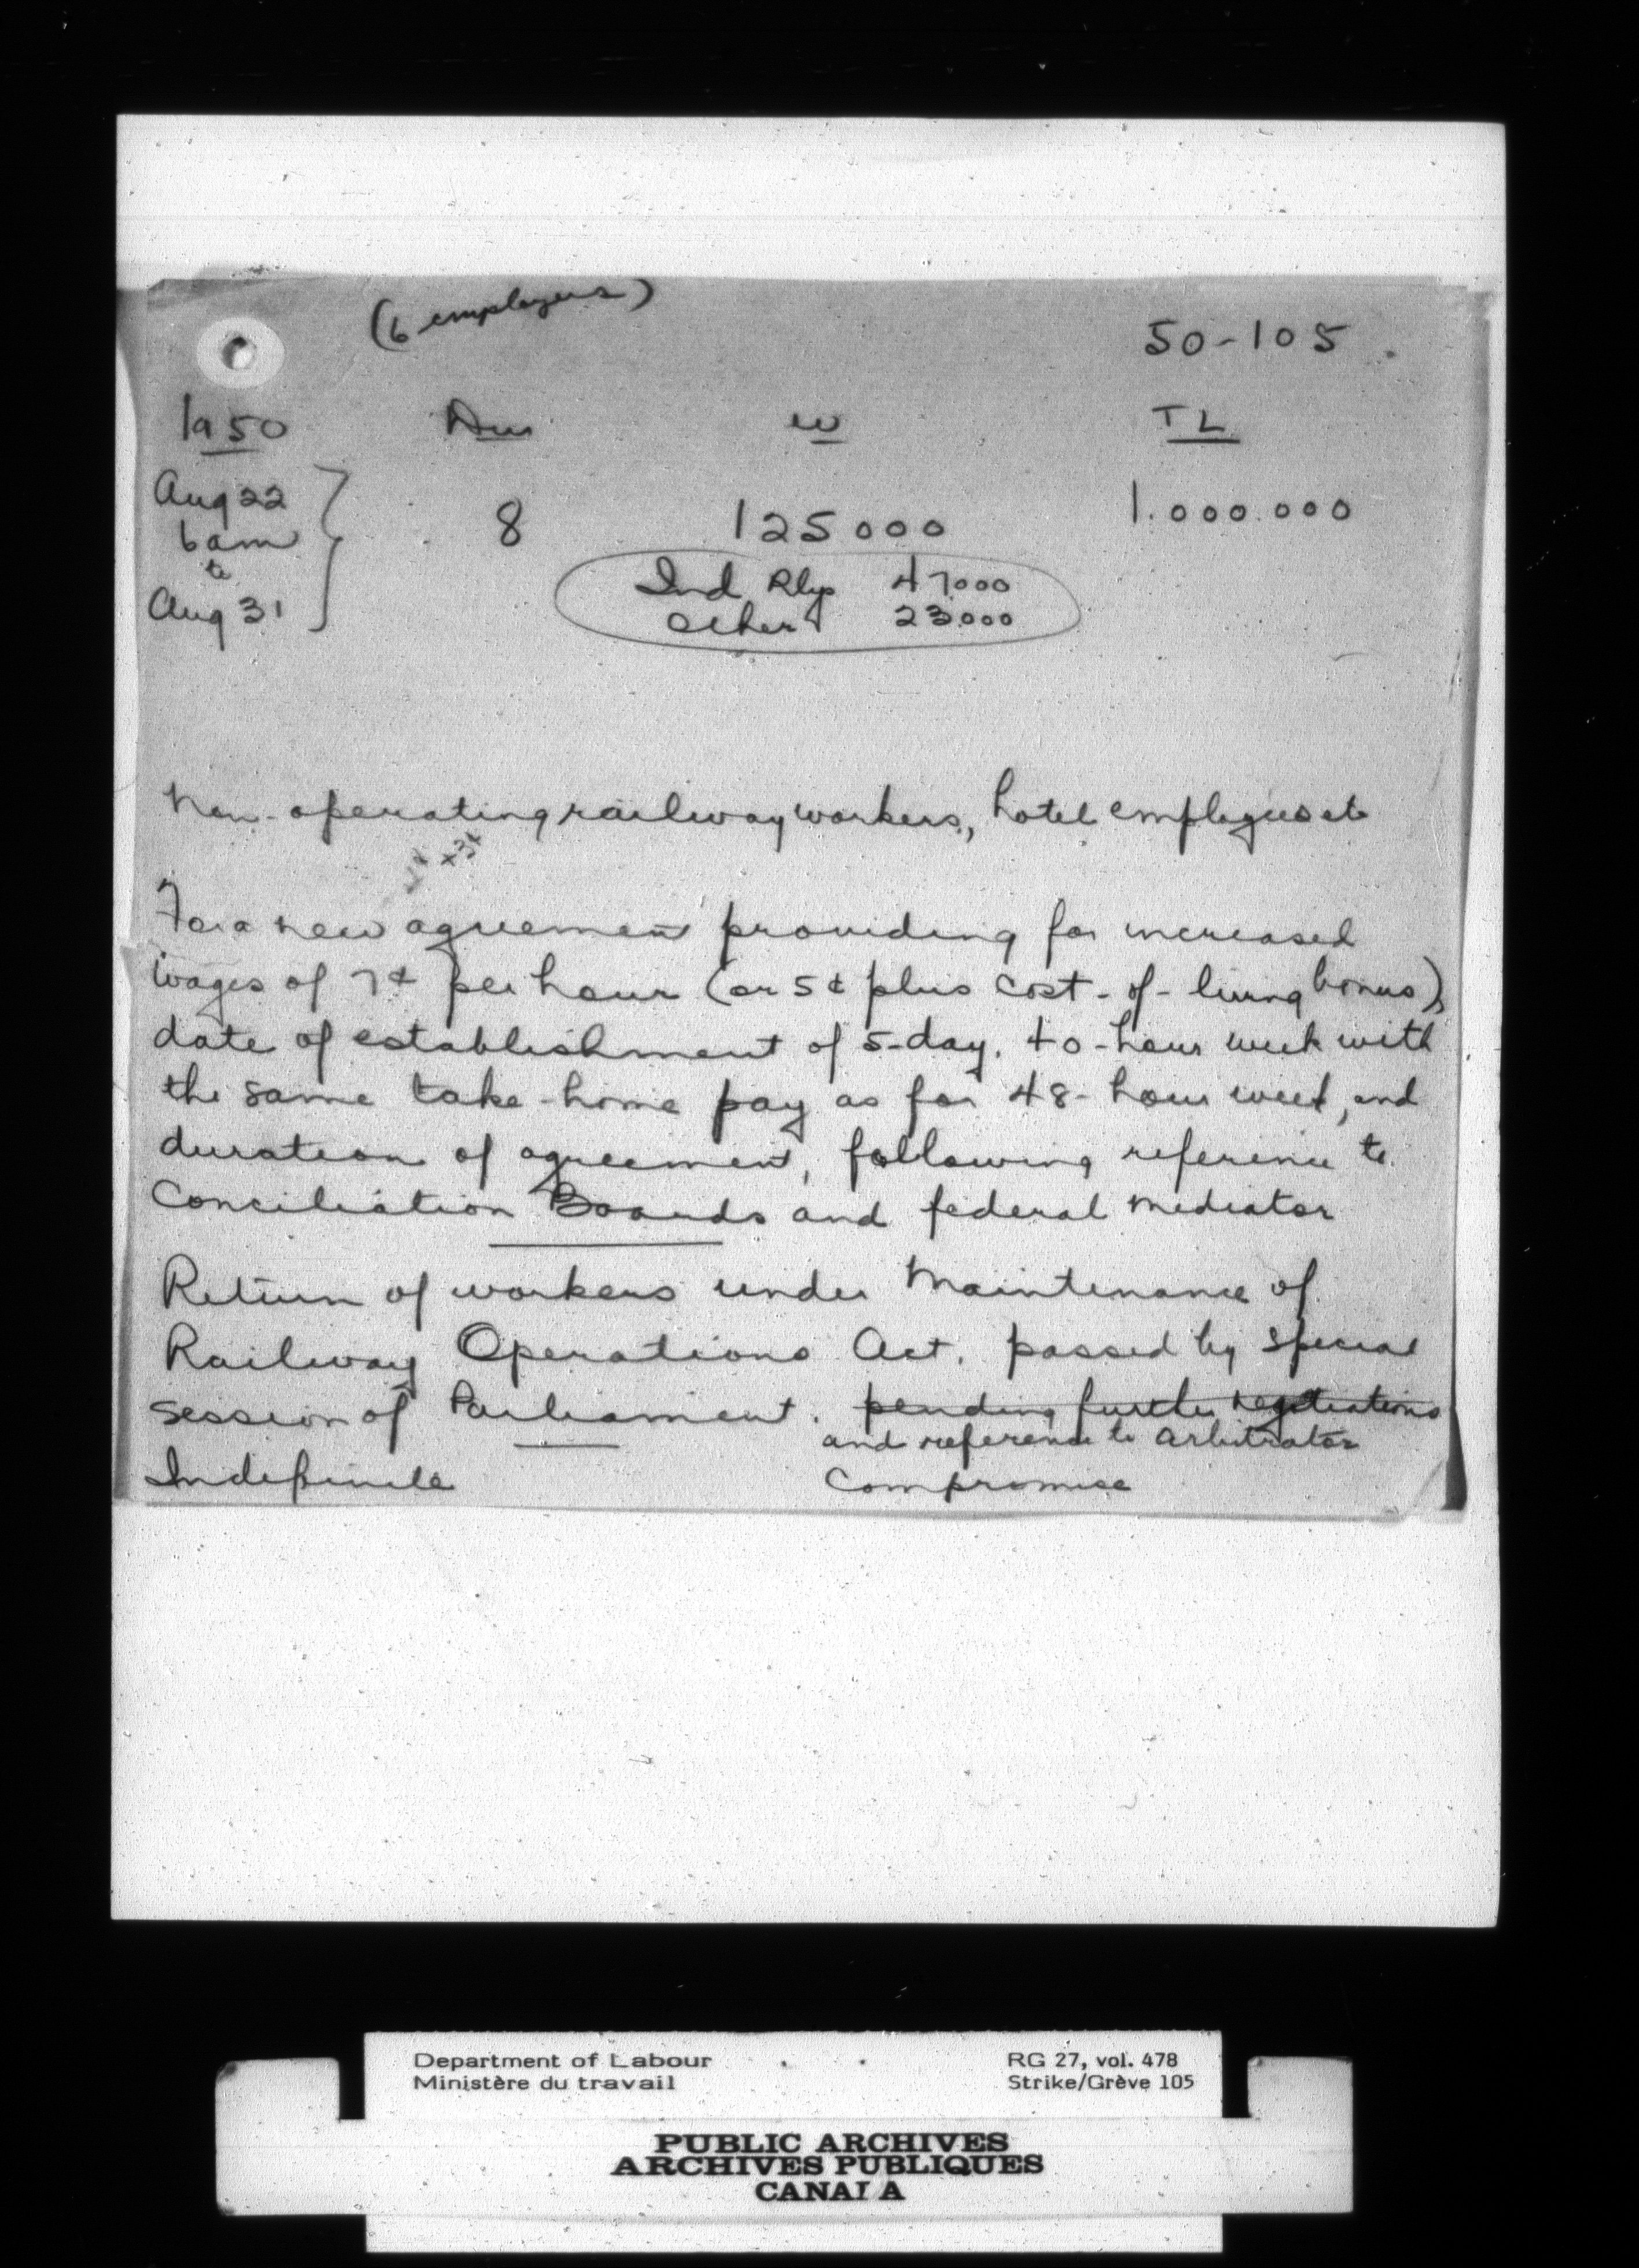 (6 employers)
50-105
1950 Dur W TL
Aug 22
6 am
to
Aug 31
8 125000 1.000.000
Ind. Rlys 47.000
Other 23.000
Non-operating railway workers, hotel employees etc
For a new agreement providing for increased
wages of 7¢ per hour (or 5¢ plus cost-of-living bonus),
date of establishment of 5-day, 40-hour week with
the same take-home pay as for 48-hour week, and
duration of agreement, following reference to
Conciliation Boards and federal mediator
Return of workers under Maintenance of
Railway Operations Act, passed by special
session of Parliament. pending further negotiations
and reference to arbitrator
Indefinite Compromise
Department of Labour RG 27, vol. 478
Ministère du travail Strike/Grève 105
PUBLIC ARCHIVES
ARCHIVES PUBLIQUES
CANADA